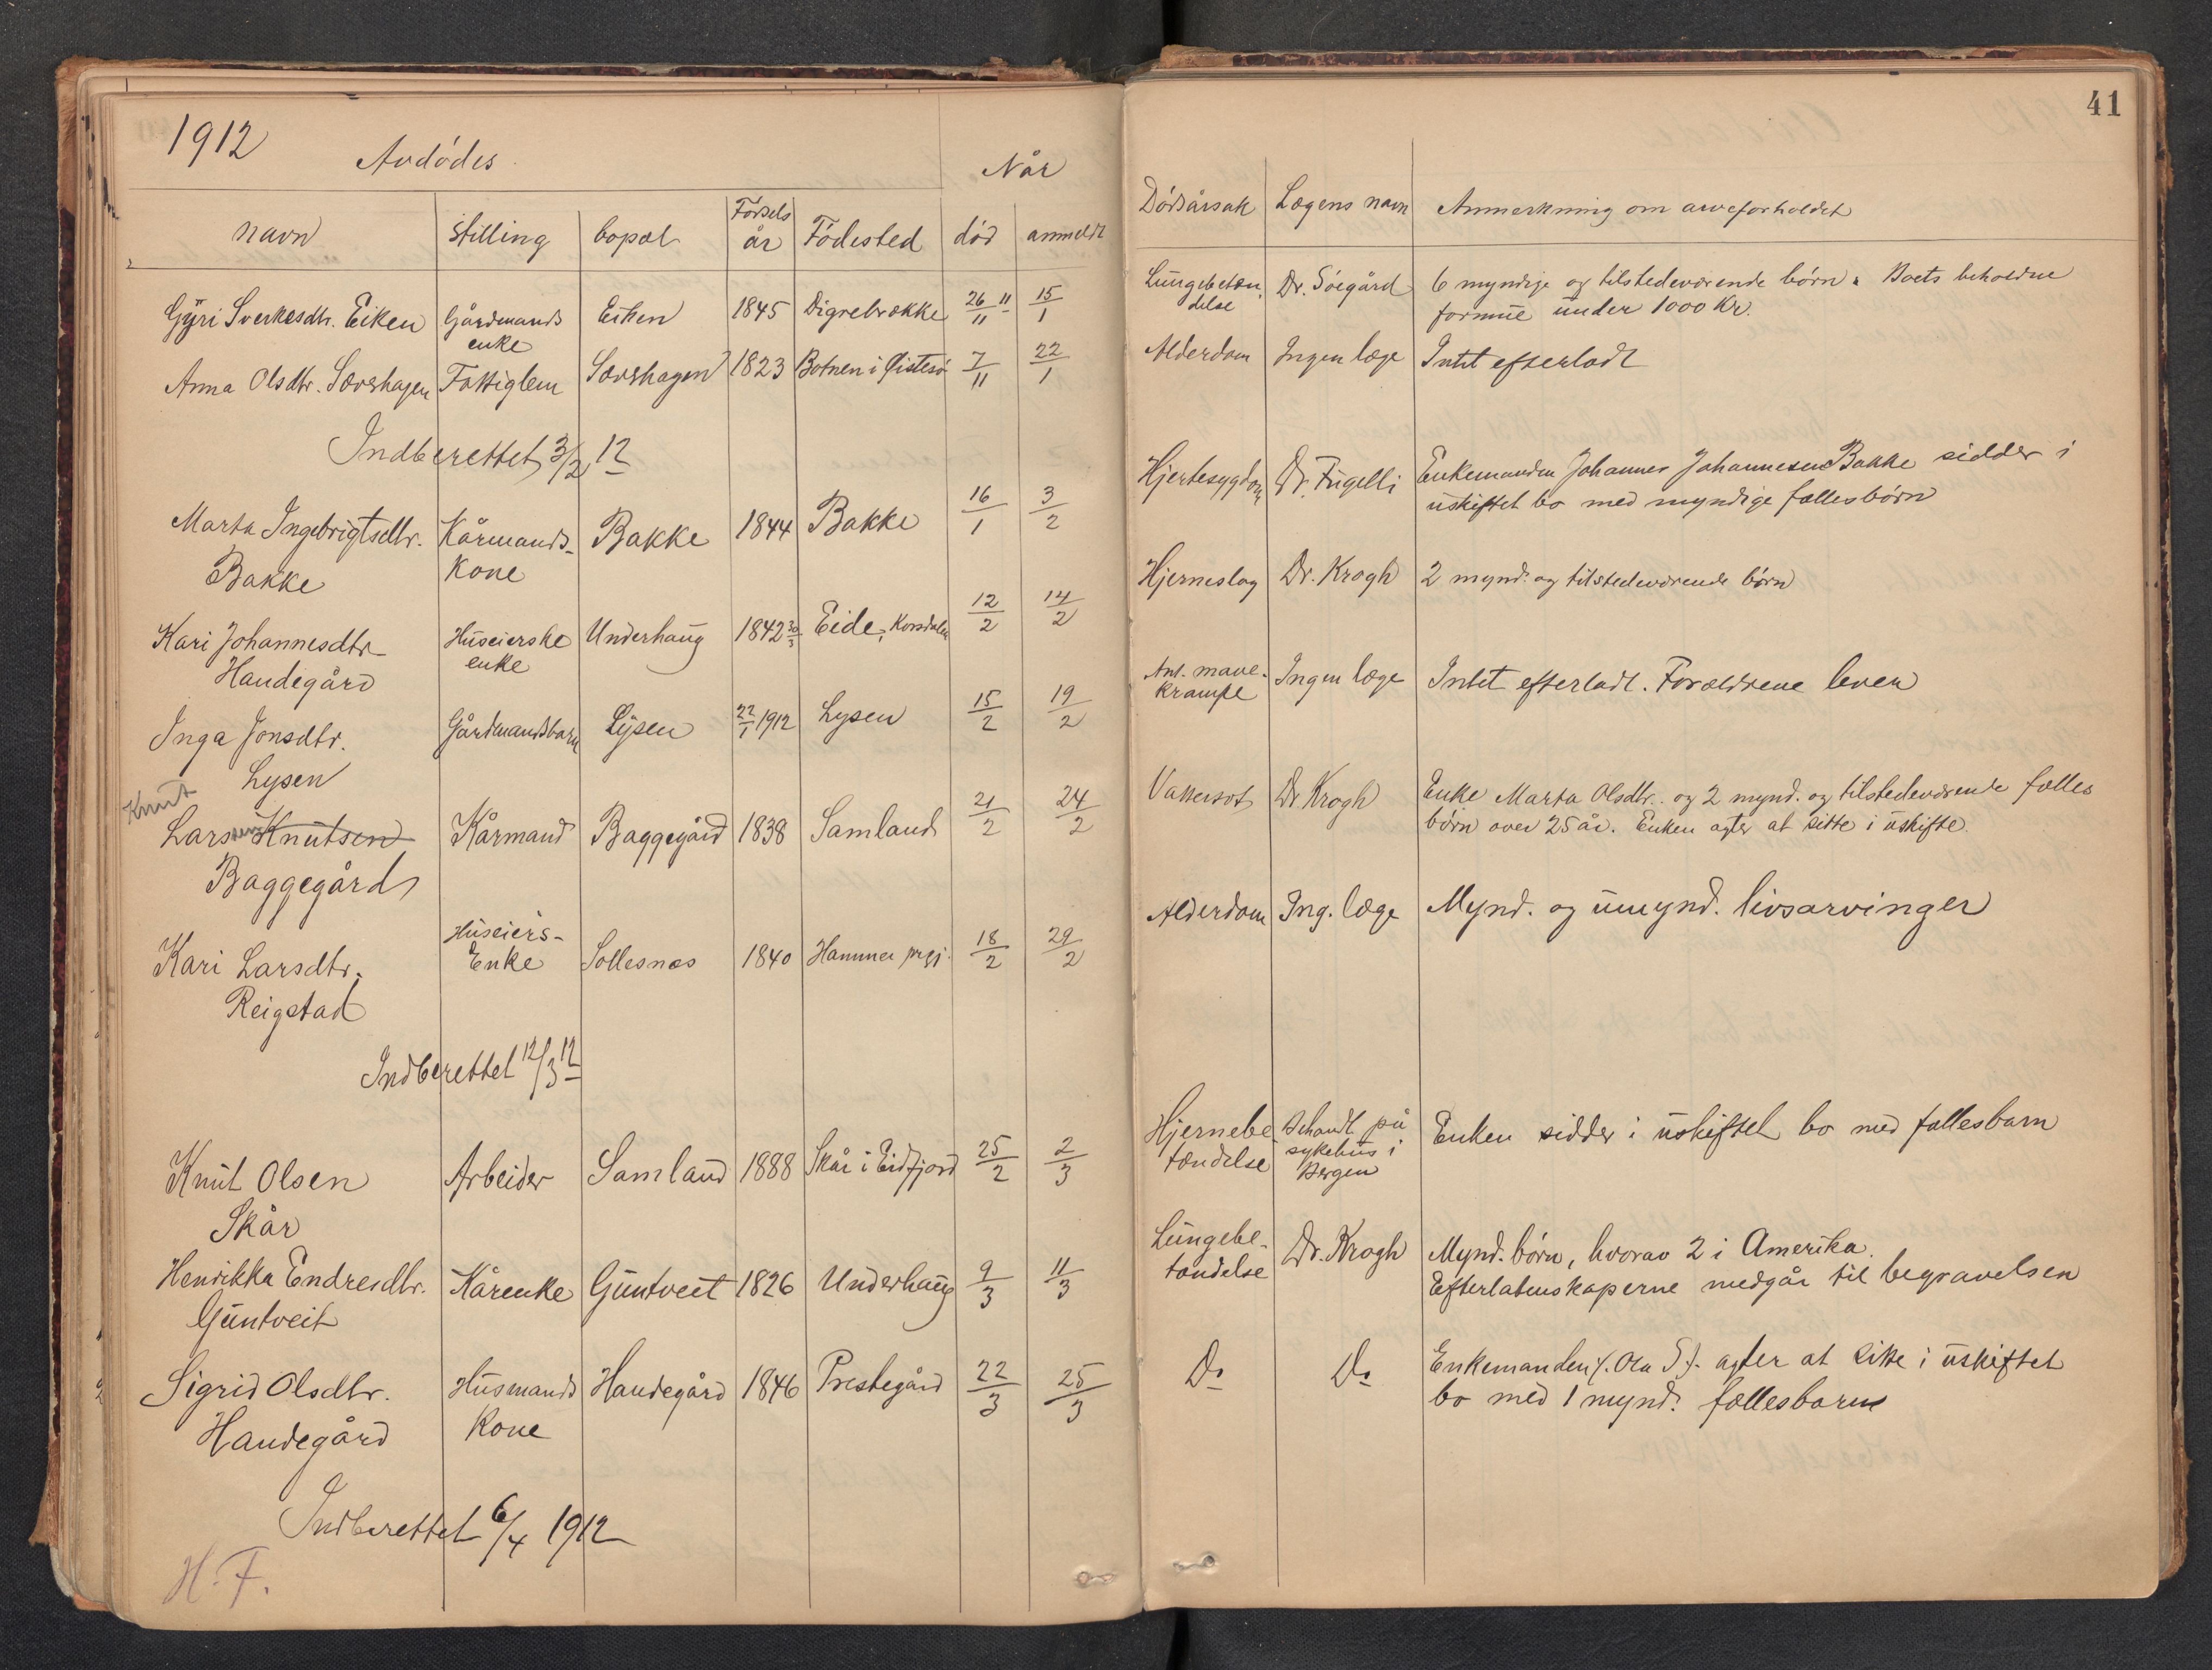 1912
Avdødes
Når
navn stilling bopæl Fødsels år Fødested død anmeldt
Gÿri Sverkesdtr. Eiken Gårdmands enke Eiken 1845 Digrebrække 26/11 11 15/1
Anna Olsdtr. Sævshagen Fattiglem Sævshagen 1823 Botnen i Østesø 7/11 22/1
Indberettet 3/2 12
Marta Ingebrigtsdtr. Kårmands- Bakke 1844 Bakke 16/1 3/2
Bakke kone
Kari Johannesdtr Huseierske Underhaug 1842 30/3 Eide, 12/2 14/2
Handegård enke
Inga Jonsdtr. Gårdmandsbarn Lÿsen 22/1 1912 Lysen 15/2 19/2
Lysen
Knut
Lars Knutsen Kårmand Baggegård 1838 Samland 21/2 24/2
Baggegård
Kari Larsdtr. Huseiers- Enke Sollesnæs 1840 Hammer prgj. 18/2 29/2
Reigstad
Indberettet 12/3 12
Knut Olsen Arbeider Samland 1888 Skår i Eidfjord 25/2 2/3
Skår
Henrikka Endresdtr. Kårenke Guntveit 1826 Underhaug 9/3 11/3
Guntveit
Sigrid Olsdtr. Husmands Handegård 1846 Prestegård 22/3 25/3
Handegård kone
Indberettet 6/4 1912
H. F.
41
Dødsårsak Lægens navn Anmerkning om arveforholdet
Lungebetæn- Dr. Söegård 6 myndige og tilstedeværende børn. Boets beholdne
delse formue under 1000 Kr.
Alderdom Ingen læge Intet efterladt
Hjertesygdom Dr. Fugelli Enkemanden Johannes Johannesen Bakke sidder i
uskiftet bo med myndige fællesbørn
Hjerneslag Dr. Krogh 2 mynd. og tilstedeværende børn
Ant. mave- Ingen læge Intet efterladt. Forældrene lever
krampe
Vattersot Dr Krogh Enke Marta Olsdtr. og 2 mynd. og tilstedeværende fælles
børn over 25 år. Enken agter at sitte i uskifte.
Alderdom Ing. læge Mynd. og umynd. livsarvinger
Hjernebe- Behandl. på Enken sidder i uskiftet bo med fællesbarn
tændelse sykehus i
Bergen
Lungebe- Dr. Krogh Mynd. børn, hvorav 2 i Amerika.
tændelse Efterlatenskaperne medgår til begravelsen
Do Do Enkemanden /. Ola S /. agter at sitte i uskiftet
bo med 1 mynd. fællesbarn